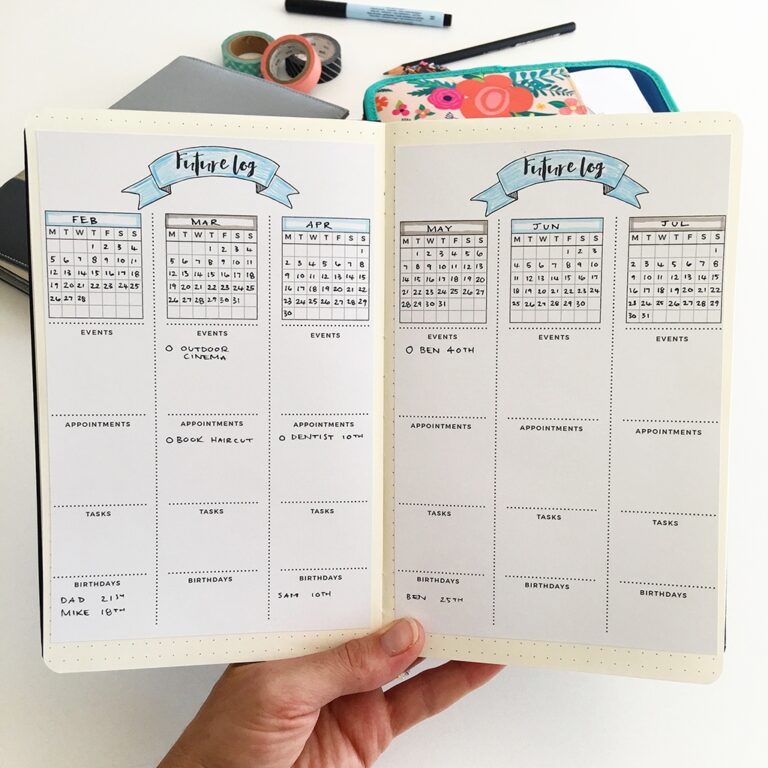 Future log
FEB
M T W T F S S
1 2 3 4
5 6 7 8 9 10 11
12 13 14 15 16 17 18
19 20 21 22 23 24 25
26 27 28
EVENTS
APPOINTMENTS
TASKS
BIRTHDAYS
DAD 21ST
MIKE 18TH
MAR
M T W T F S S
1 2 3 4
5 6 7 8 9 10 11
12 13 14 15 16 17 18
19 20 21 22 23 24 25
26 27 28 29 30 31
EVENTS
O OUTDOOR
CINEMA
APPOINTMENTS
O BOOK HAIRCUT
TASKS
BIRTHDAYS
APR
M T W T F S S
1
2 3 4 5 6 7 8
9 10 11 12 13 14 15
16 17 18 19 20 21 22
23 24 25 26 27 28 29
30
EVENTS
APPOINTMENTS
O DENTIST 10TH
TASKS
BIRTHDAYS
SAM 10TH
Future log
MAY
M T W T F S S
1 2 3 4 5 6
7 8 9 10 11 12 13
14 15 16 17 18 19 20
21 22 23 24 25 26 27
28 29 30 31
EVENTS
O BEN 40TH
APPOINTMENTS
TASKS
BIRTHDAYS
BEN 25TH
JUN
M T W T F S S
1 2 3
4 5 6 7 8 9 10
11 12 13 14 15 16 17
18 19 20 21 22 23 24
25 26 27 28 29 30
EVENTS
APPOINTMENTS
TASKS
BIRTHDAYS
JUL
M T W T F S S
1
2 3 4 5 6 7 8
9 10 11 12 13 14 15
16 17 18 19 20 21 22
23 24 25 26 27 28 29
30 31
EVENTS
APPOINTMENTS
TASKS
BIRTHDAYS